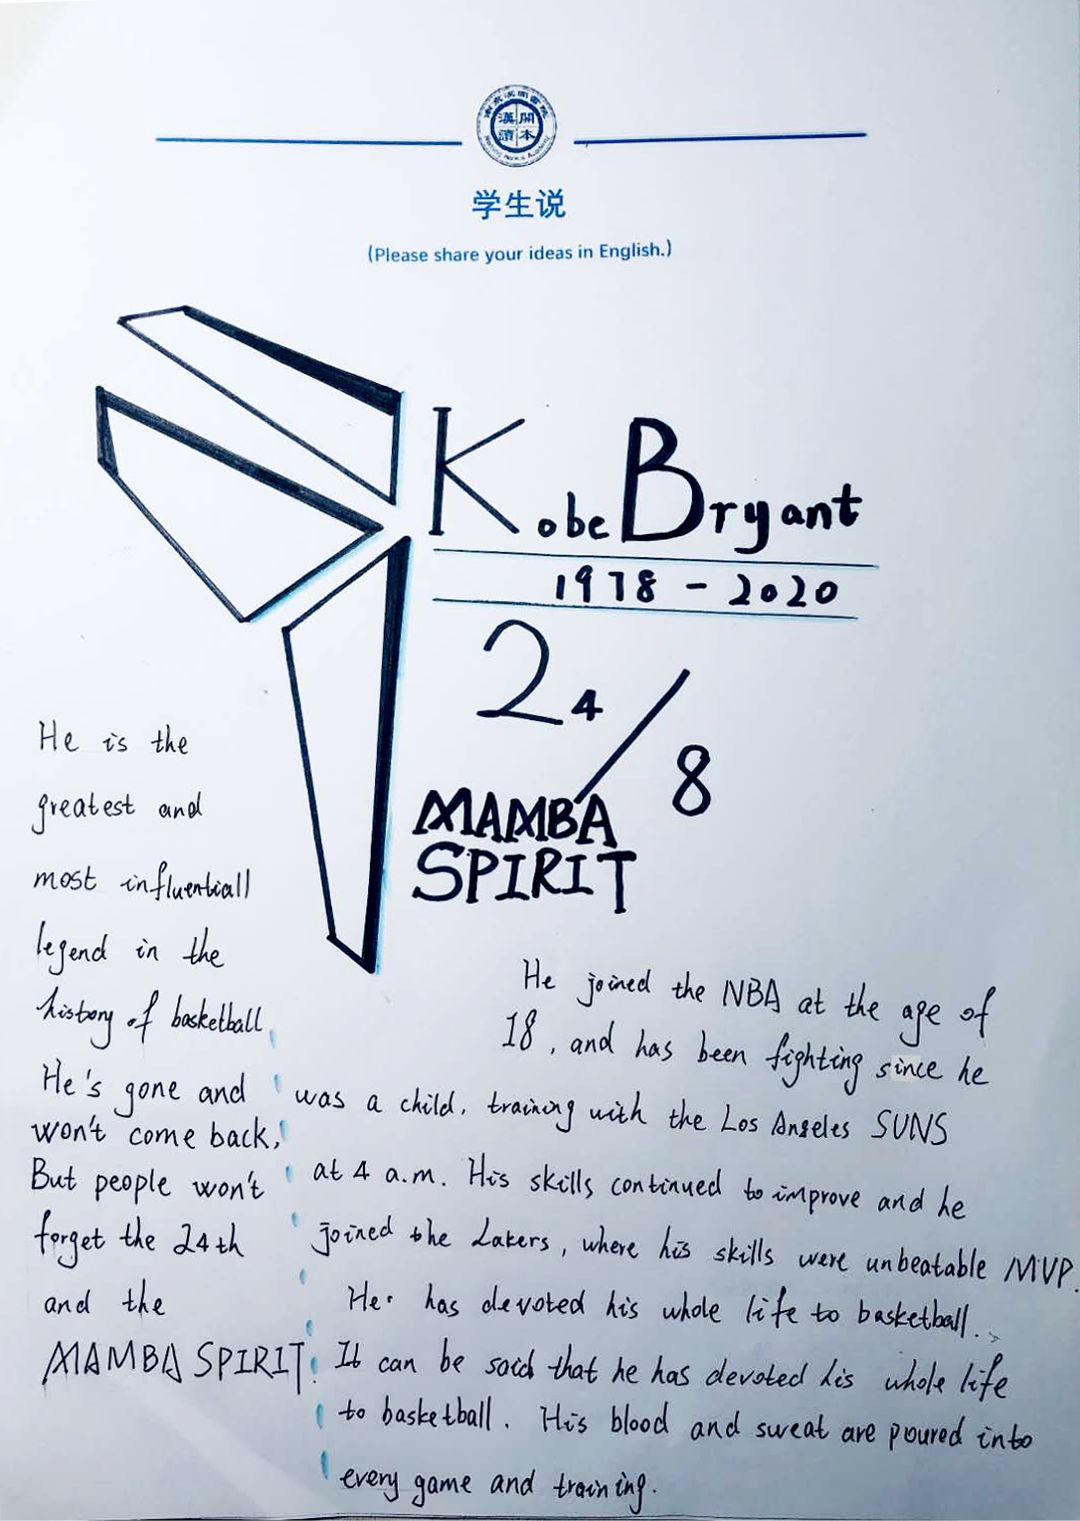 漢 開
讀 本
学生说
(Please share your ideas in English.)
Kobe Bryant
1978 - 2020
24/8
MAMBA
SPIRIT
He is the
greatest and
most influentiall
legend in the
history of basketball,
He's gone and
won't come back,
But people won't
forget the 24th
and the
MAMBA SPIRIT.
He joined the NBA at the age of
18, and has been fighting since he
was a child, training with the Los Angeles SUNS
at 4 a.m. His skills continued to improve and he
joined the Lakers, where his skills were unbeatable MVP.
He has devoted his whole life to basketball.
It can be said that he has devoted his whole life
to basketball. His blood and sweat are poured into
every game and training.